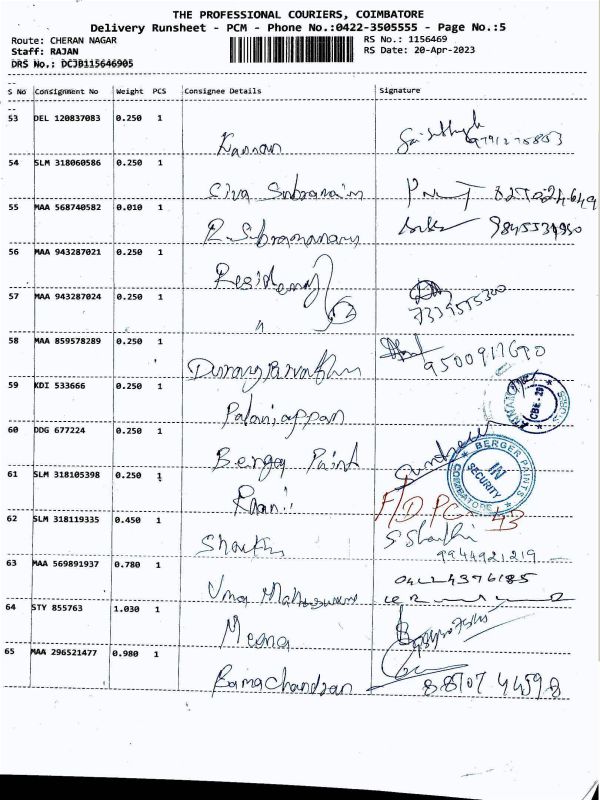 THE PROFESSIONAL COURIERS, COIMBATORE
Delivery Runsheet - PCM - Phone No.:0422-3505555 - Page No.:5
Route: CHERAN NAGAR RS No.: 1156469
Staff: RAJAN RS Date: 20-Apr-2023
DRS No.: DCJB115646905
S No Consignment No Weight PCS Consignee Details Signature
53 DEL 120837083 0.250 1 Kannan
54 SLM 318060586 0.250 1 Siva Subramain
55 MAA 568740582 0.010 1 R. Subramaniam
56 MAA 943287021 0.250 1 Residency
57 MAA 943287024 0.250 1 " 7339555300
58 MAA 859578289 0.250 1 9500917690
59 KDI 533666 0.250 1 Palaniappan
60 DDG 677224 0.250 1 Berger Paint
BERGER PAINTS
IN
SECURITY
COIMBATORE
61 SLM 318105398 0.250 1 Raani F/D PC 43
62 SLM 318119335 0.450 1 Shanthi S Shanthi
9944921219
63 MAA 569891937 0.780 1 Uma Maheswari 04224396185
64 STY 855763 1.030 1 Meena
65 MAA 296521477 0.980 1 Ramachandran 88707 44598